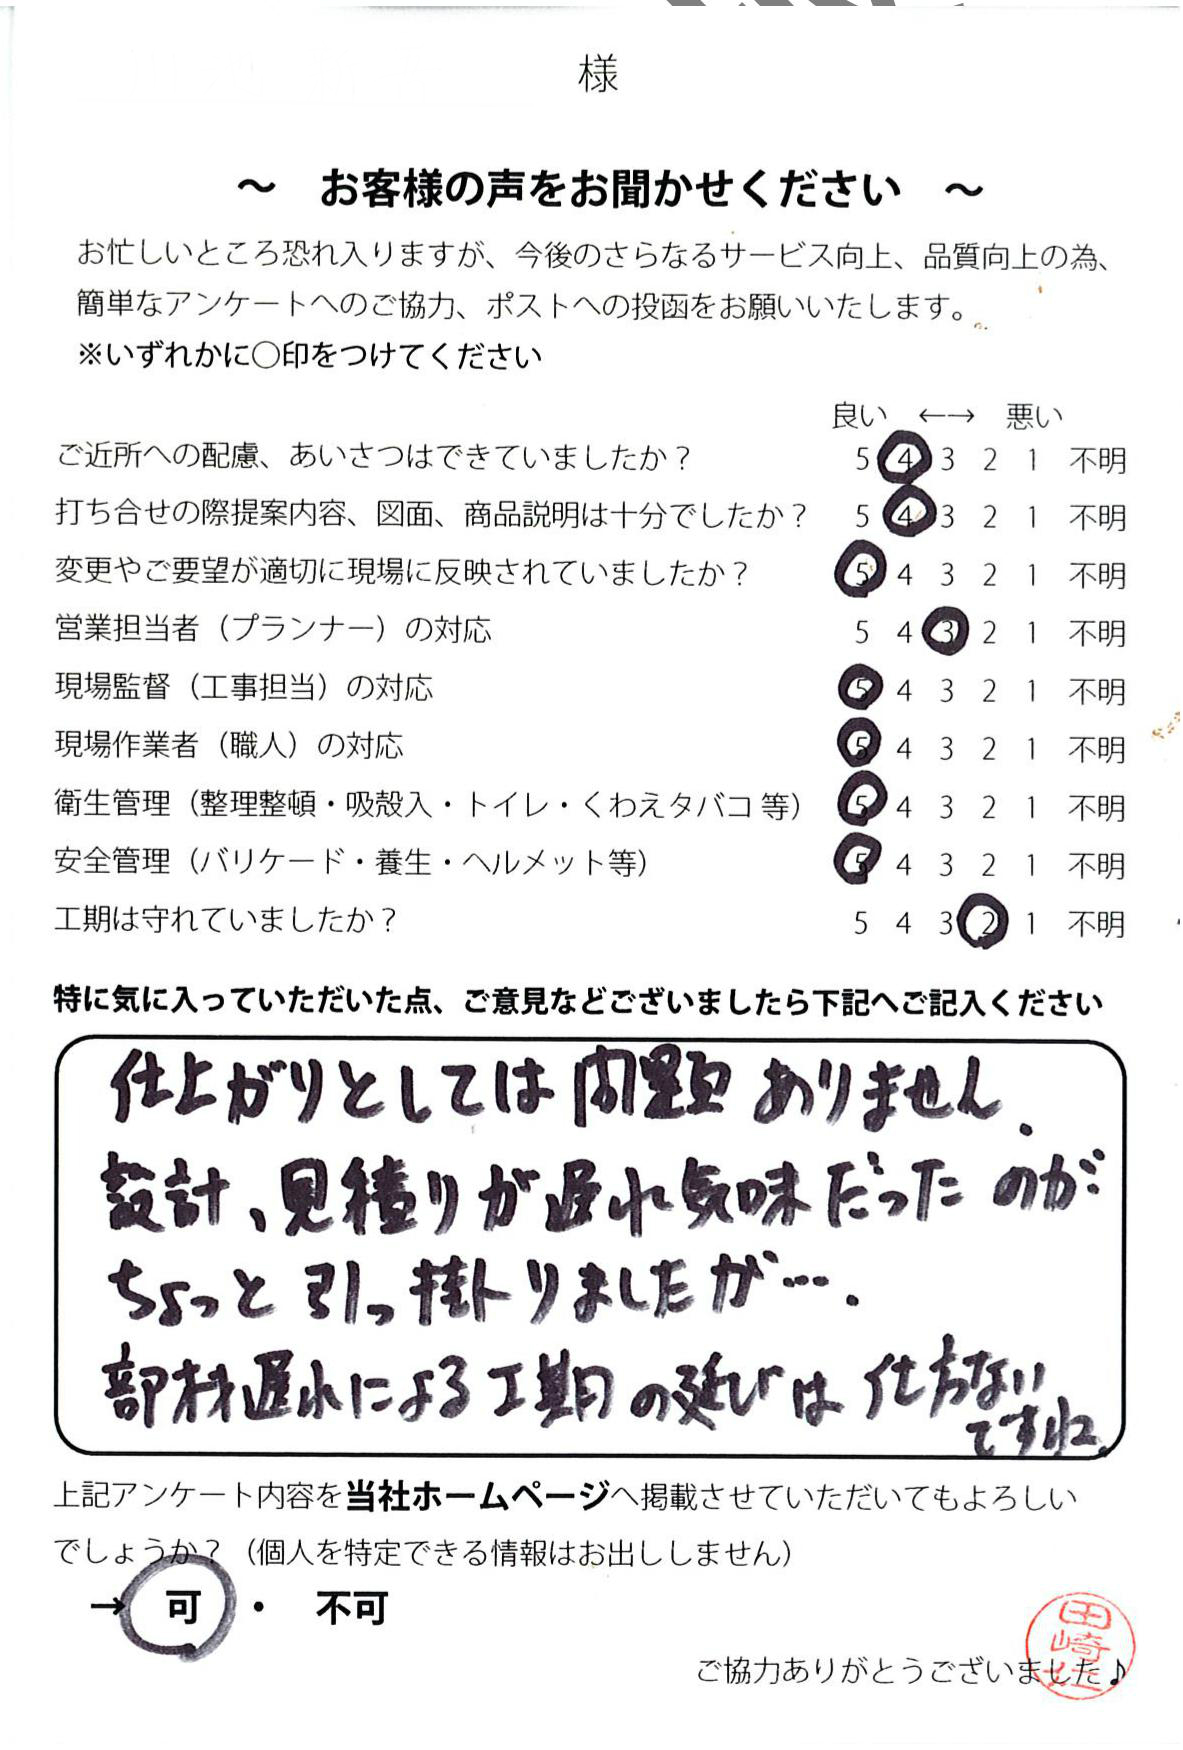 様
～ お客様の声をお聞かせください ～
お忙しいところ恐れ入りますが、今後のさらなるサービス向上、品質向上の為、
簡単なアンケートへのご協力、ポストへの投函をお願いいたします。
※いずれかに○印をつけてください
良い ←→ 悪い
ご近所への配慮、あいさつはできていましたか？ 5 4 3 2 1 不明
打ち合せの際提案内容、図面、商品説明は十分でしたか？ 5 4 3 2 1 不明
変更やご要望が適切に現場に反映されていましたか？ 5 4 3 2 1 不明
営業担当者（プランナー）の対応 5 4 3 2 1 不明
現場監督（工事担当）の対応 5 4 3 2 1 不明
現場作業者（職人）の対応 5 4 3 2 1 不明
衛生管理（整理整頓・吸殻入・トイレ・くわえタバコ 等） 5 4 3 2 1 不明
安全管理（バリケード・養生・ヘルメット等） 5 4 3 2 1 不明
工期は守れていましたか？ 5 4 3 2 1 不明
特に気に入っていただいた点、ご意見などございましたら下記へご記入ください
仕上がりとしては問題ありません.
設計、見積りが遅れ気味だったのが
ちょっと引っ掛りましたが….
部材遅れによる工期の延びは仕方ない
ですね.
上記アンケート内容を当社ホームページへ掲載させていただいてもよろしい
でしょうか？（個人を特定できる情報はお出ししません）
→ 可 ・ 不可
ご協力ありがとうございました♪
田崎